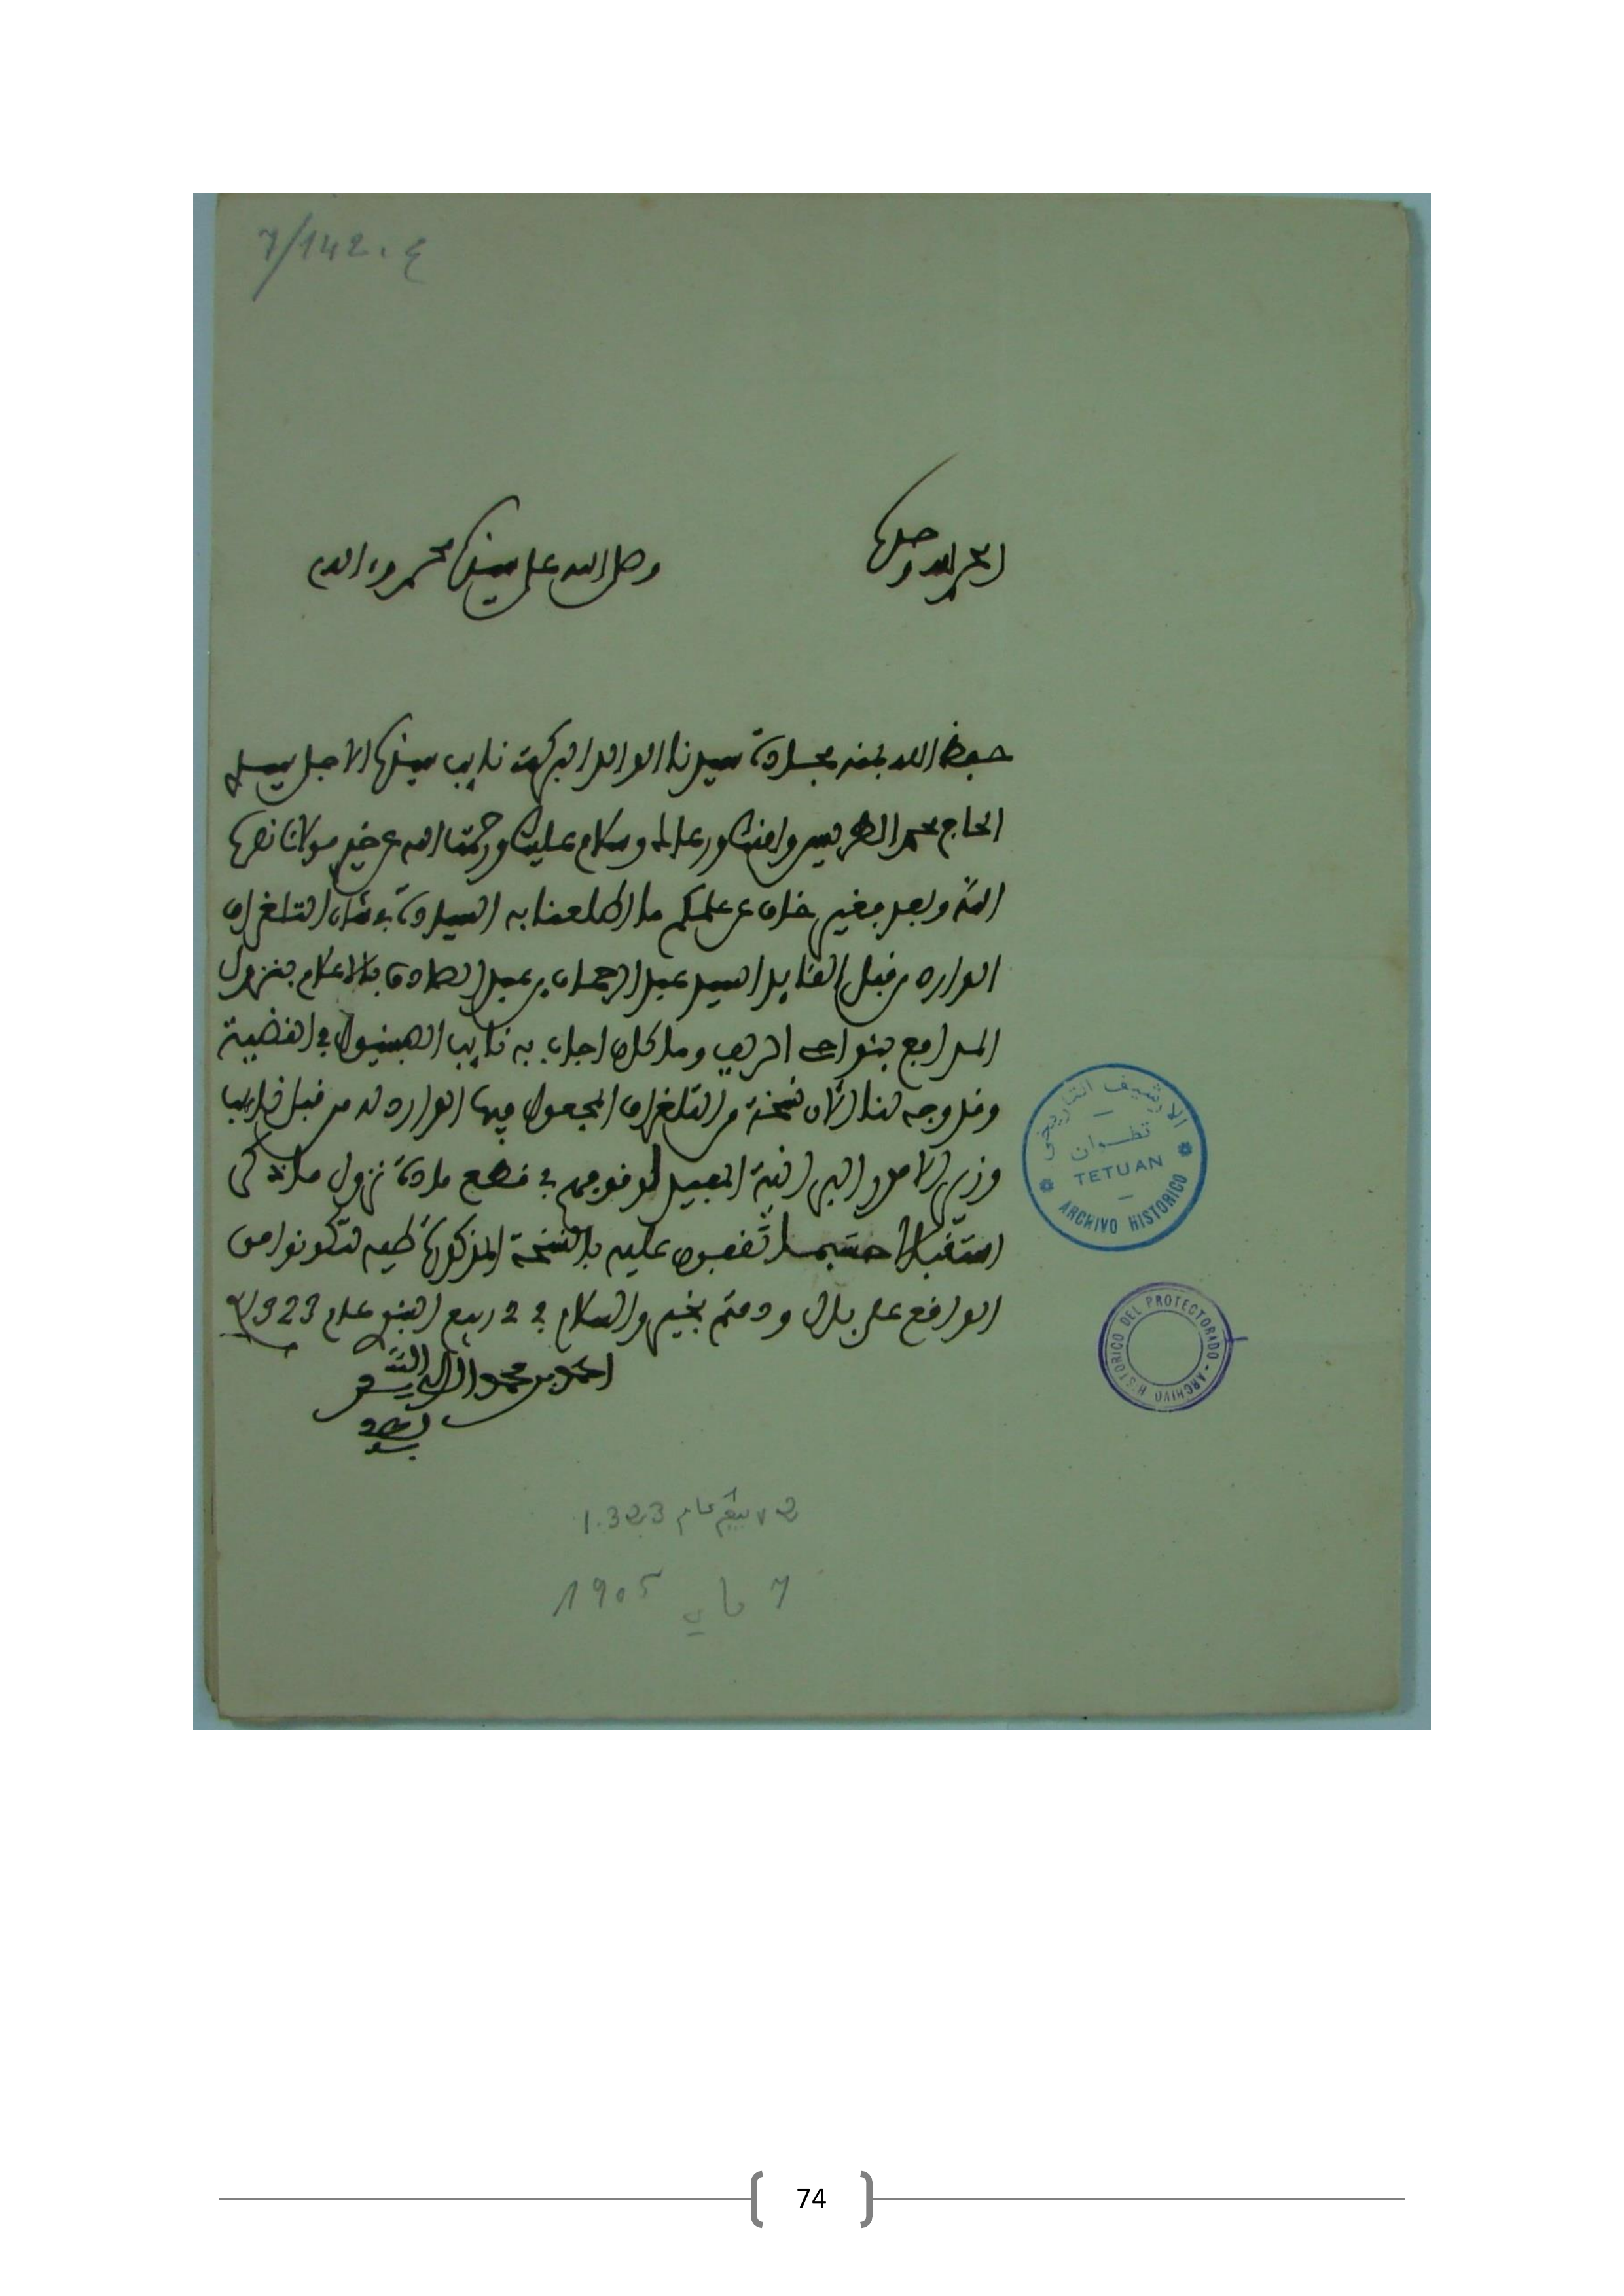 7/142 . ع
الحمد لله وحده
وصلى الله على سيدنا محمد وءاله
حفظ الله بمنه مجادة سيدنا الوالد البركة نايب سيدنا الاجل سيدي
الحاج محمد الطريس وامنكم ورعاكم وسلام عليكم ورحمت الله عن خير مولانا نصره
الله وبعد فغير خاف عن علمكم ما اطلعنا به السيادة في شان التلغراف
الوارد من قبل القايد السيد عبد الرحمان بن عبد الصادق بالاعلام بنزول
المدافع بنواحي الريف وما كان اجاب به نايب الاصبنيول في القضية
وقد وجه لنا الآن نسخة من التلغراف المجعول فيها الوارد له من قبل نايب
وزير الامور البرانية المفيد لوقوفهم في قطع مادة نزول ما ذكر
استقبالا حسبما تقفون عليه بالنسخة المذكورة طيه لتكونوا من
الواقع على بال ودمتم بخير والسلام في 2 ربيع النبوي عام 1323
احمد بن محمد
2 ربيع عام 1.323
7 ماي 1905
الارشيف التاريخي
تطوان
TETUAN
ARCHIVO HISTORICO
ARCHIVO HISTORICO DEL PROTECTORADO
74